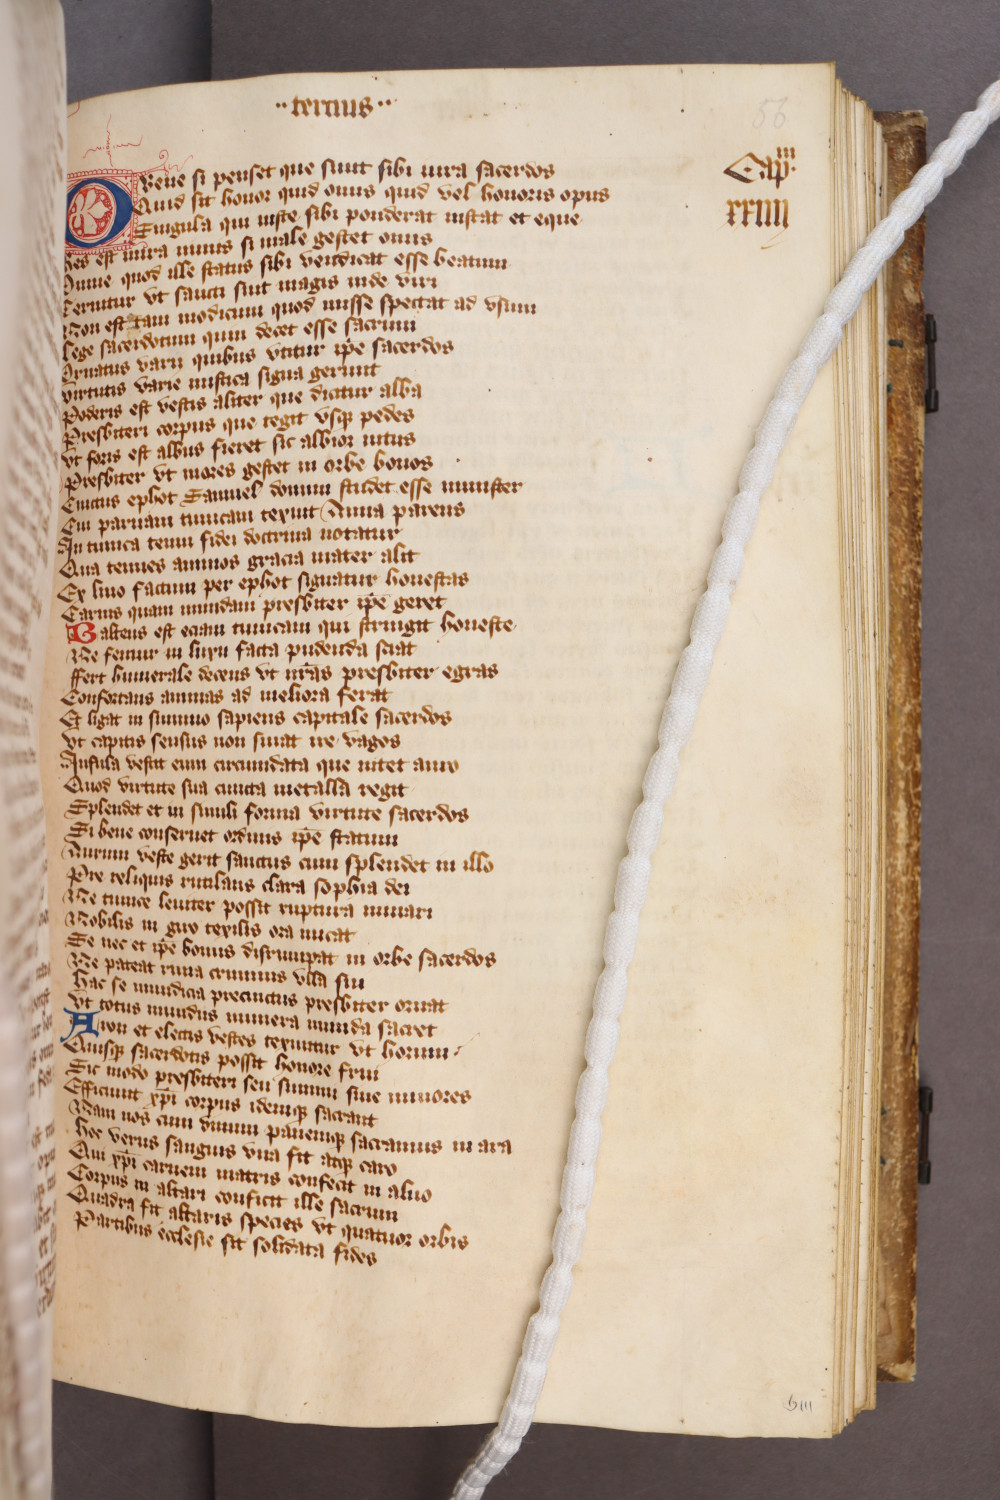 ··tercius··
56
Cap^m
xxiiii
O bene si penset que sunt sibi iura sacerdos
Quid sit honor quid onus quid vel honoris opus
Singula qui iuste sibi ponderat instat et eque
Res est mira minus si male gestet onus
Anne quod ille status sibi vendicat esse beatum
Cernitur vt sancti sint magis inde viri
Non est tam modicum quod misse spectat ad vsum
Lege sacerdotum quin decet esse sacrum
Ornatus varii quibus vtitur ip̄e sacerdos
virtutis varie mistica signa gerunt
Poderis est vestis aliter que dicitur alba
Presbiteri corpus que tegit vsq; pedes
vt foris est albus fieret sic albior intus
Presbiter vt mores gestet in orbe bonos
Cinctus ephot Samuel domini studet esse minister
Cui paruam tunicam texuit Anna parens
In tunica tenui fidei doctrina notatur
Qua tenues animos gracia mater alit
Ex lino factum per ephot signatur honestas
Carius quam mundam presbiter ip̄e geret
Balteus est eciam tunicam qui stringit honeste
Ne feritur in luxu facta pudenda sciat
ffert humerale decens vt nr̄as presbiter egras
Confortans animas ad meliora ferat
Et ligat in summo sapiens capitale sacerdos
vt capitis sensus non sinat ire vagos
Infula vestit eum circumdata que nitet auro
Quod virtute sua cuncta metalla regit
Splendet et in simili forma virtute sacerdos
Si bene conseruet ordinis ip̄e statum
Aurum veste gerit sanctus cum splendet in illo
Pre reliquis rutilans clara sophia dei
Ne tunice leuiter possit ruptura minari
Nobilis in giro texilis ora micat
Se nec et ip̄e bonus disrumpat in orbe sacerdos
Ne pateat rima criminis vlla sui
Hac se mundicia precinctus presbiter ornat
Vt totus mundus munera munda sacret
Aron et electis vestes texuntur vt horum
Quisq; sacerdotis possit honore frui
Sic modo presbiteri seu summi siue minores
Efficiunt xp̄i corpus idemq; sacrant
Nam nos cum vinum panemq; sacramus in ara
Hec verus sanguis vna fit atq; caro
Qui xp̄i carnem matris confecit in aluo
Corpus in altari conficit ille sacrum
Quadra fit altaris species vt quatuor orbis
Partibus ecclesie sit solidata fides